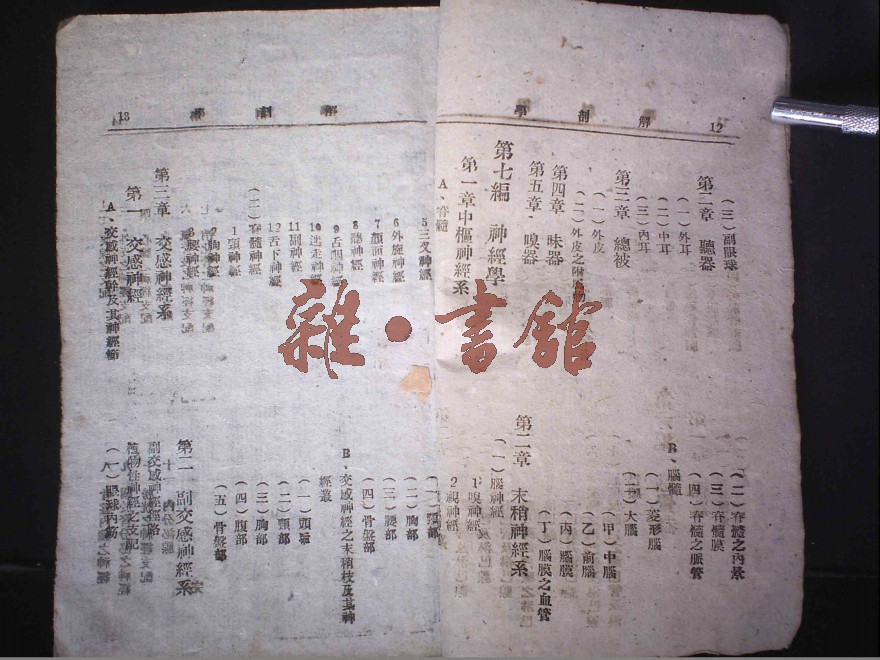 解剖學
12
(三)副眼球
第二章 聽器
(一)外耳
(二)中耳
(三)內耳
第三章 總被
(一)外皮
(二)外皮之附
第四章 味器
第五章 嗅器
第七編 神經學
第一章中樞神經系
A、脊髓
(二)脊髓之內景
(三)脊髓膜
(四)脊髓之脈管
B、腦髓
(一)菱形腦
(二)大腦
(甲)中腦
(乙)前腦
(丙)腦膜
(丁)腦膜之血管
第二章 末梢神經系
(一)腦神經
1嗅神經
2視神經
解剖學
13
5三叉神經
6外旋神經
7顏面神經
8聽神經
9舌咽神經
10迷走神經
11副神經
12舌下神經
(二)脊髓神經
1頸神經
2胸神經
3腰神經
第三章 交感神經系
第一 交感神經
A、交感神經幹及其神經節
(一)頸部
(二)胸部
(三)腰部
(四)骨盤部
B、交感神經之末梢枝及其神
經叢
(一)頭部
(二)頸部
(三)胸部
(四)腹部
(五)骨盤部
第二 副交感神經系
副交感神經經路
植物性神經之支配
(八)眼球內筋
雜·書館